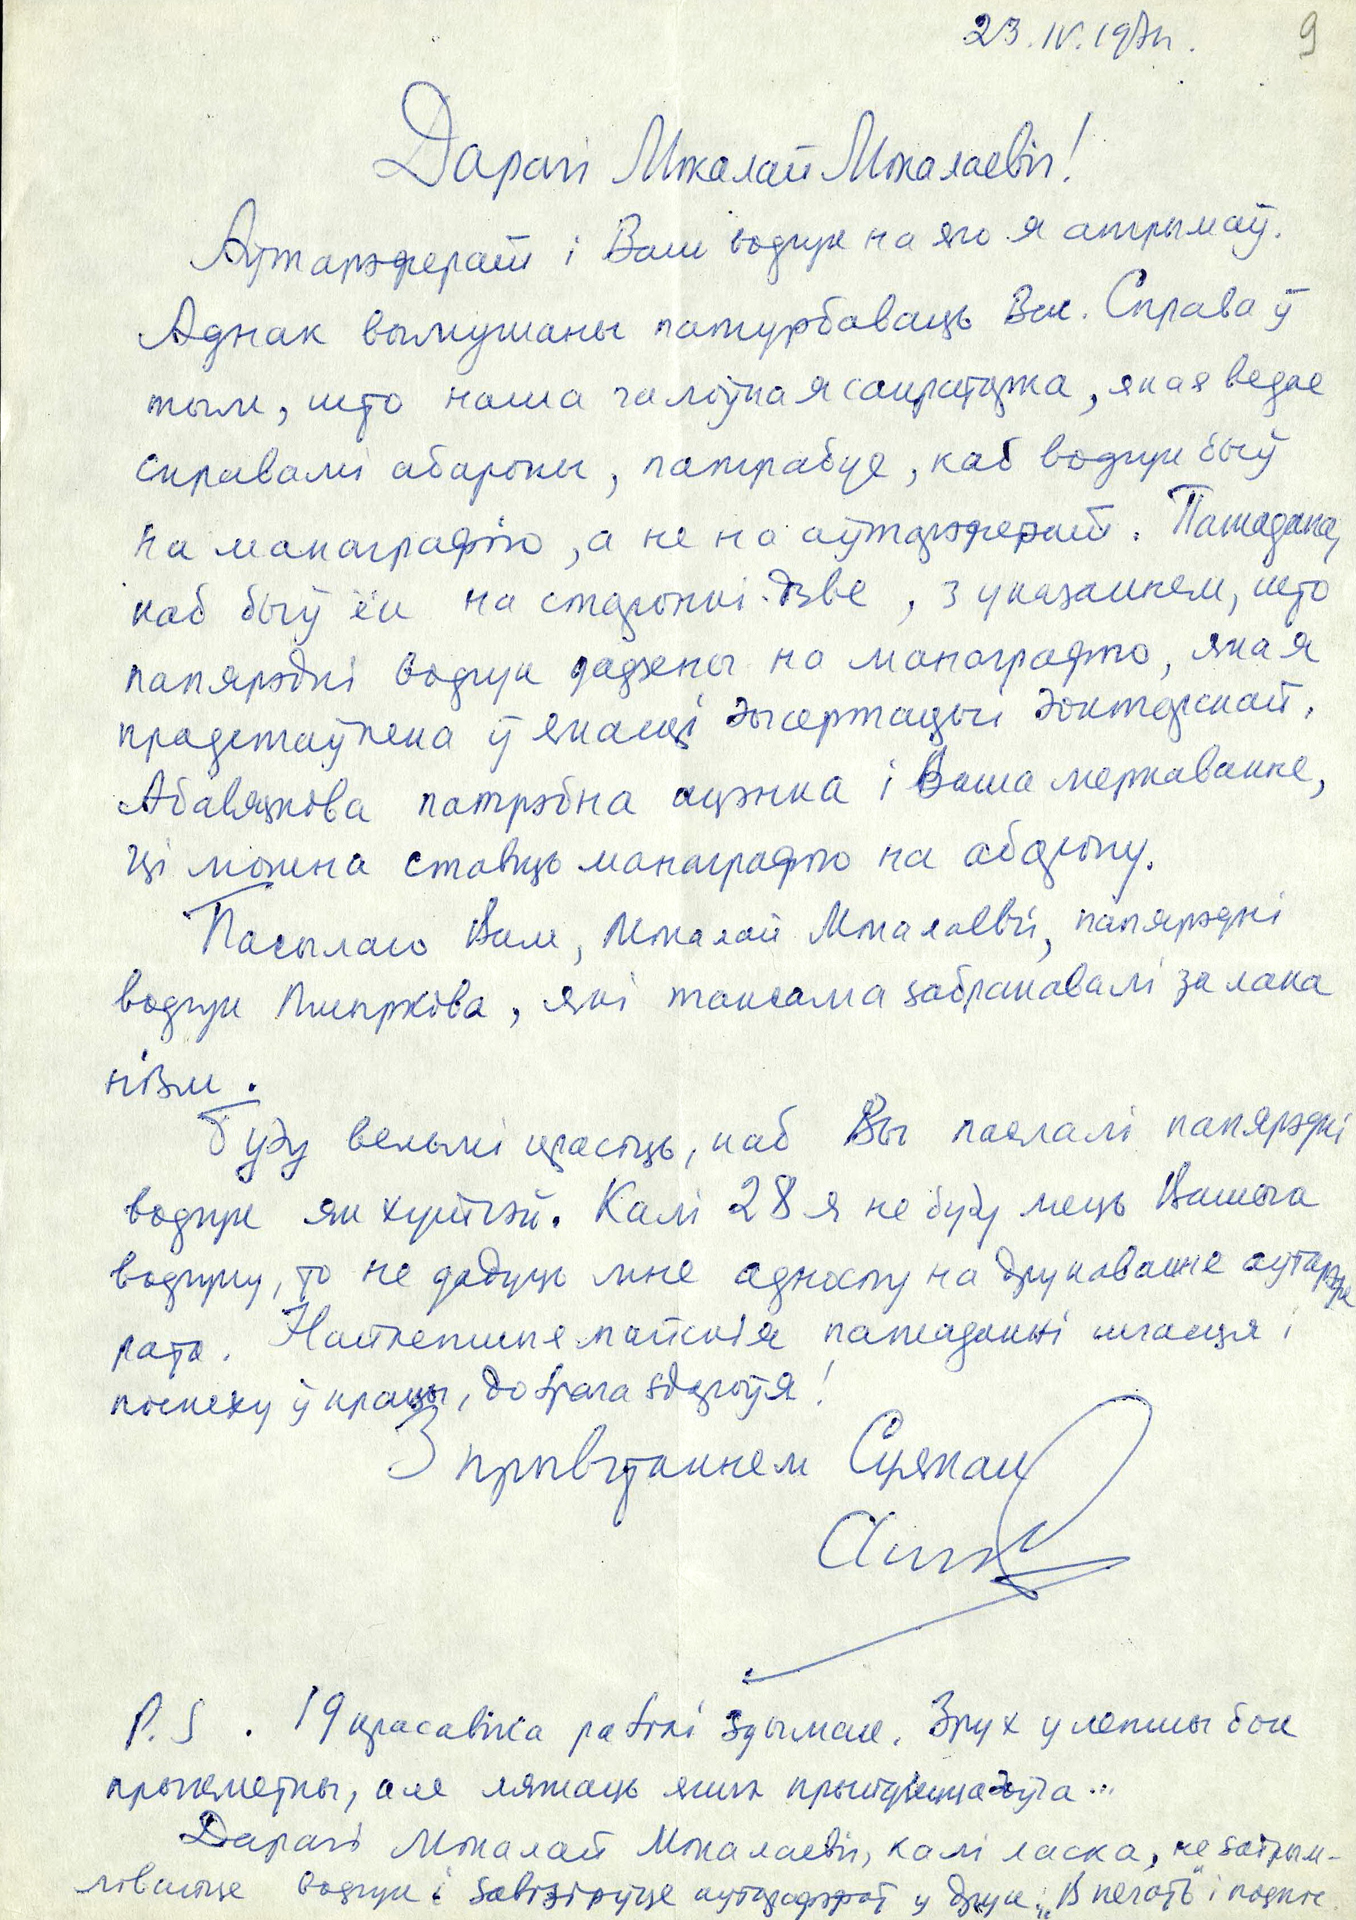 23.IV.197 г. 9
Дарагі Мікалай Мікалаевіч!
Аўтарэферат і Ваш водгук на яго я атрымаў.
Аднак вымушаны патурбаваць Вас. Справа ў
тым, што наша галоўная сакратарка, якая ведае
справамі абароны, патрабуе, каб водгук быў
на манаграфію, а не на аўтарэферат. Пажадана,
каб быў ён на старонкі дзве, з указаннем, што
папярэдні водгук дадзены на манаграфію, якая
прадстаўлена ў якасці дысертацыі доктарскай.
Абавязкова патрэбна ацэнка і Ваша меркаванне,
ці можна ставіць манаграфію на абарону.
Пасылаю Вам, Мікалай Мікалаевіч, папярэдні
водгук Піліпкова, які таксама забракавалі за лака
нізм.
Буду вельмі прасіць, каб Вы паслалі папярэдні
водгук як хутчэй. Калі 28 я не буду мець Вашага
водгуку, то не дадуць мне адносіну на друкаванне аутарэфе
рата. Найлепшыя майскія пажаданні шчасця і
поспеху ў працы, добрага здароўя!
З прывітаннем Сцяпан
P.S. 19 красавіка рабілі здымак. Зрух у лепшы бок
прыкметны, але ляжаць яшчэ прыйдзецца доўга...
Дарагі Мікалай Мікалаевіч, калі ласка, не затрым-
лівайце водгук і завізіруйце аутарэферат у друк: „В печать" і подпіс.